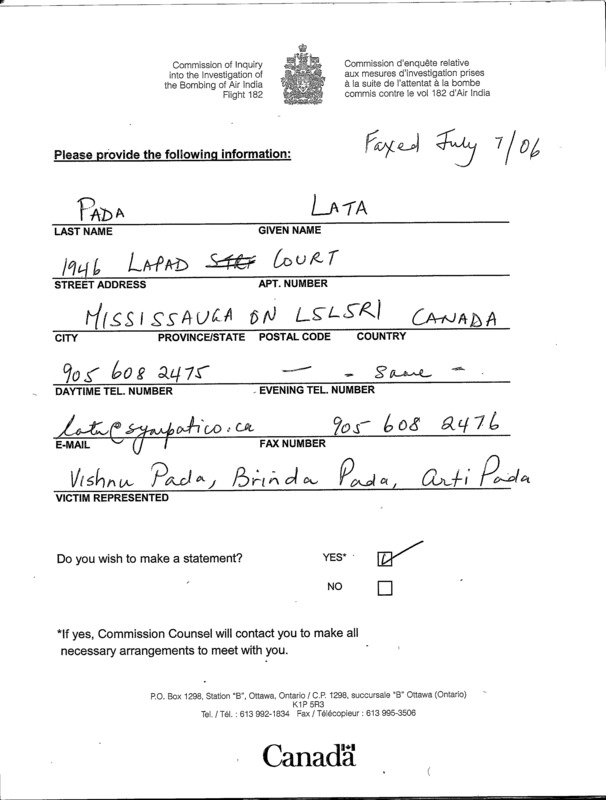 Commission of Inquiry
into the Investigation of
the Bombing of Air India
Flight 182
Commission d'enquête relative
aux mesures d'investigation prises
à la suite de l'attentat à la bombe
commis contre le vol 182 d'Air India
Faxed July 7/06
Please provide the following information:
PADA LATA
LAST NAME GIVEN NAME
1946 LAPAD COURT
STREET ADDRESS APT. NUMBER
MISSISSAUGA ON L5L5R1 CANADA
CITY PROVINCE/STATE POSTAL CODE COUNTRY
905 608 2475 — - Same -
DAYTIME TEL. NUMBER EVENING TEL. NUMBER
lata@sympatico.ca 905 608 2476
E-MAIL FAX NUMBER
Vishnu Pada, Brinda Pada, Arti Pada
VICTIM REPRESENTED
Do you wish to make a statement? YES*
NO
*If yes, Commission Counsel will contact you to make all
necessary arrangements to meet with you.
P.O. Box 1298, Station "B", Ottawa, Ontario / C.P. 1298, succursale "B" Ottawa (Ontario)
K1P 5R3
Tel. / Tél. : 613 992-1834 Fax / Télécopieur : 613 995-3506
Canada